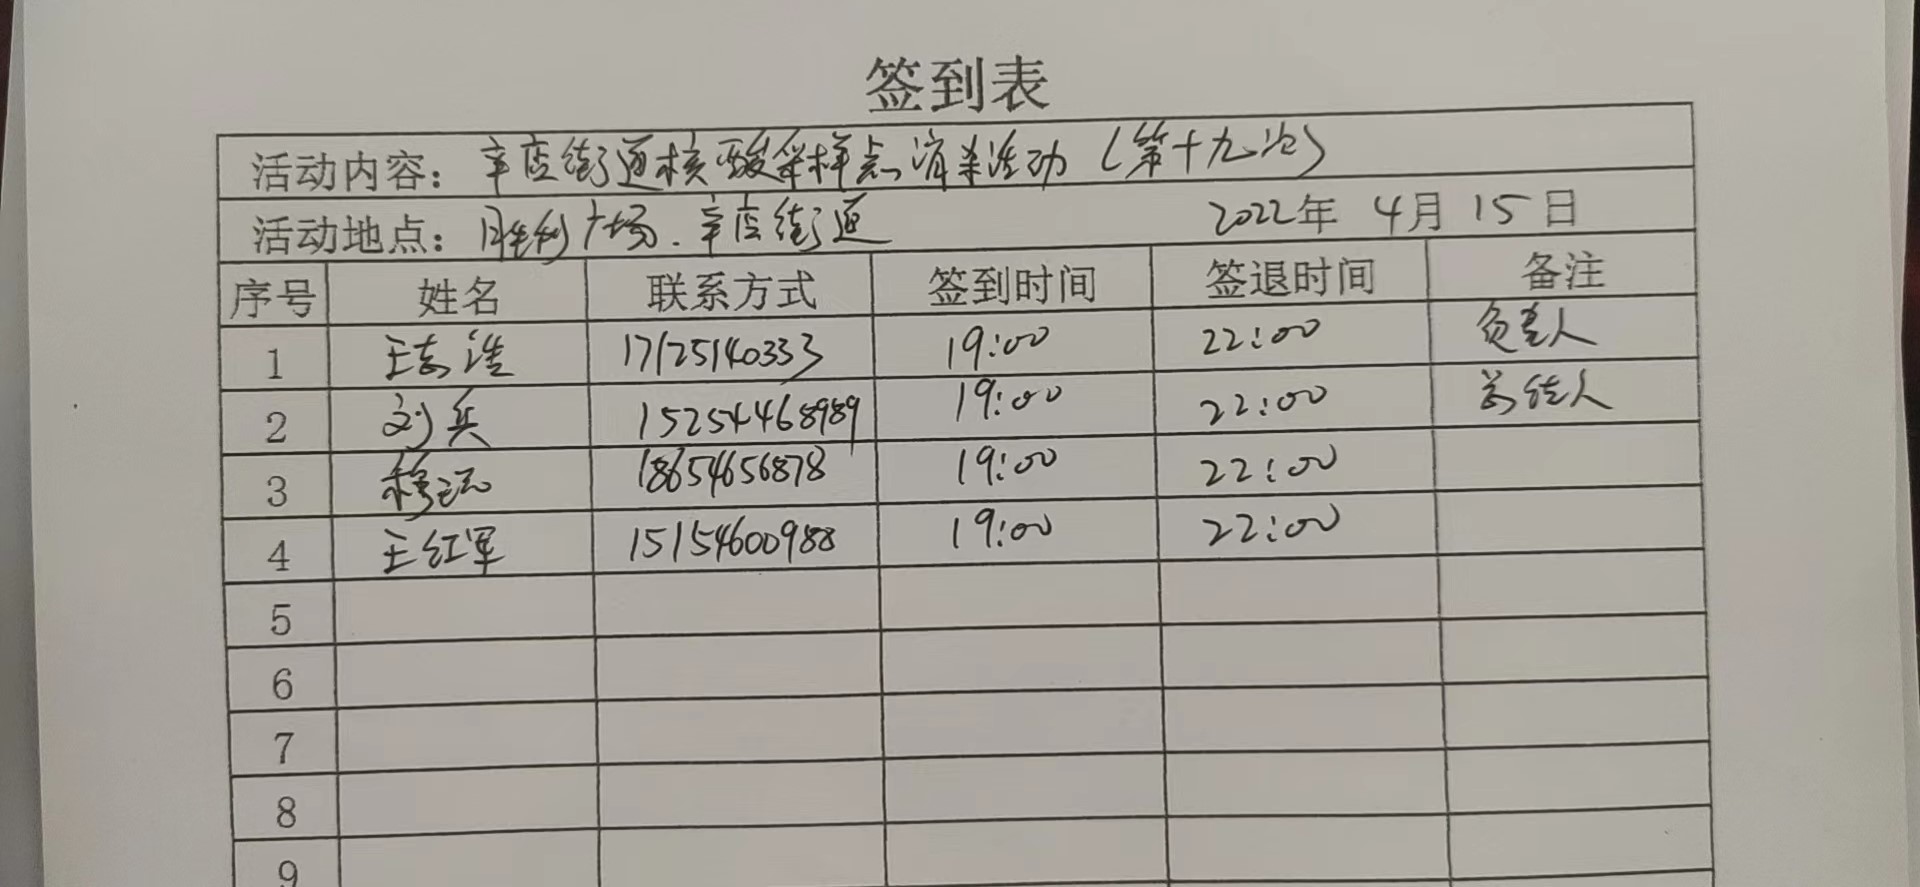 签到表
活动内容：辛店街道核酸采样点消杀活动（第十九次）
活动地点：胜利广场.辛店街道 2022年 4月 15日
序号 姓名 联系方式 签到时间 签退时间 备注
1 王志浩 17125140333 19:00 22:00 负责人
2 刘兵 15254468989 19:00 22:00
3 18654656878 19:00 22:00
4 王红军 15154600988 19:00 22:00
5
6
7
8
9